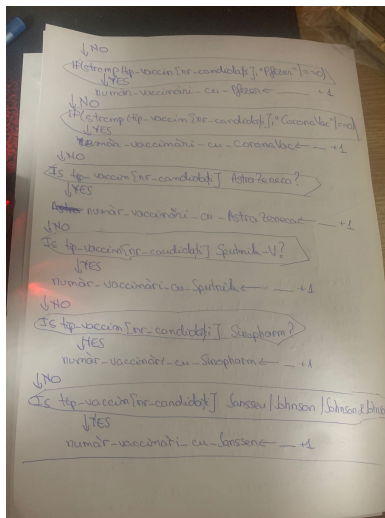 ↓NO
If(strcmp(tip-vaccin[nr-candidați],"Pfizer")==0)
↓YES
număr-vaccinări-cu-Pfizer← __ +1
↓NO
If(strcmp(tip-vaccin[nr-candidați],"CoronaVac")==0)
↓YES
număr-vaccinări-cu-CoronaVac← __ +1
↓NO
Is tip-vaccin[nr-candidați] AstraZeneca?
↓YES
număr-vaccinări-cu-AstraZeneca← __ +1
↓NO
Is tip-vaccin[nr-candidați] Sputnik-V?
↓YES
număr-vaccinări-cu-Sputnik← __ +1
↓NO
Is tip-vaccin[nr-candidați] Sinopharm?
↓YES
număr-vaccinări-cu-Sinopharm← __ +1
↓NO
Is tip-vaccin[nr-candidați] Janssen/Johnson/Johnson&Johns
↓YES
număr-vaccinări-cu-Janssen← __ +1